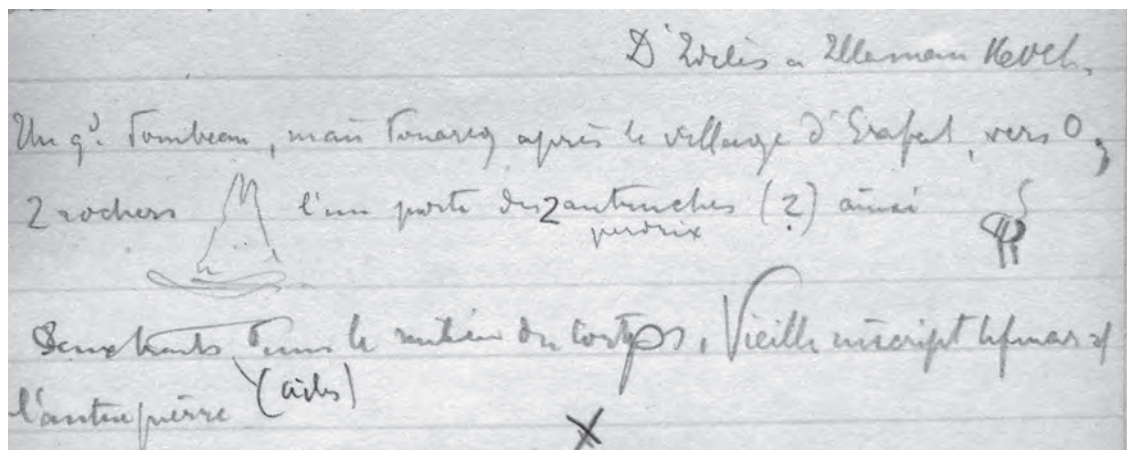 D'Idelès a
Un gd. Tombeau, mais Touareg après le village d'Erafat, vers O,
2 rochers l'un porte des 2 autruches (?) ainsi
perdrix
Deux traits dans le milieu du corps. Vieille inscript tifinar sr
(ailes)
l'autre pierre
X